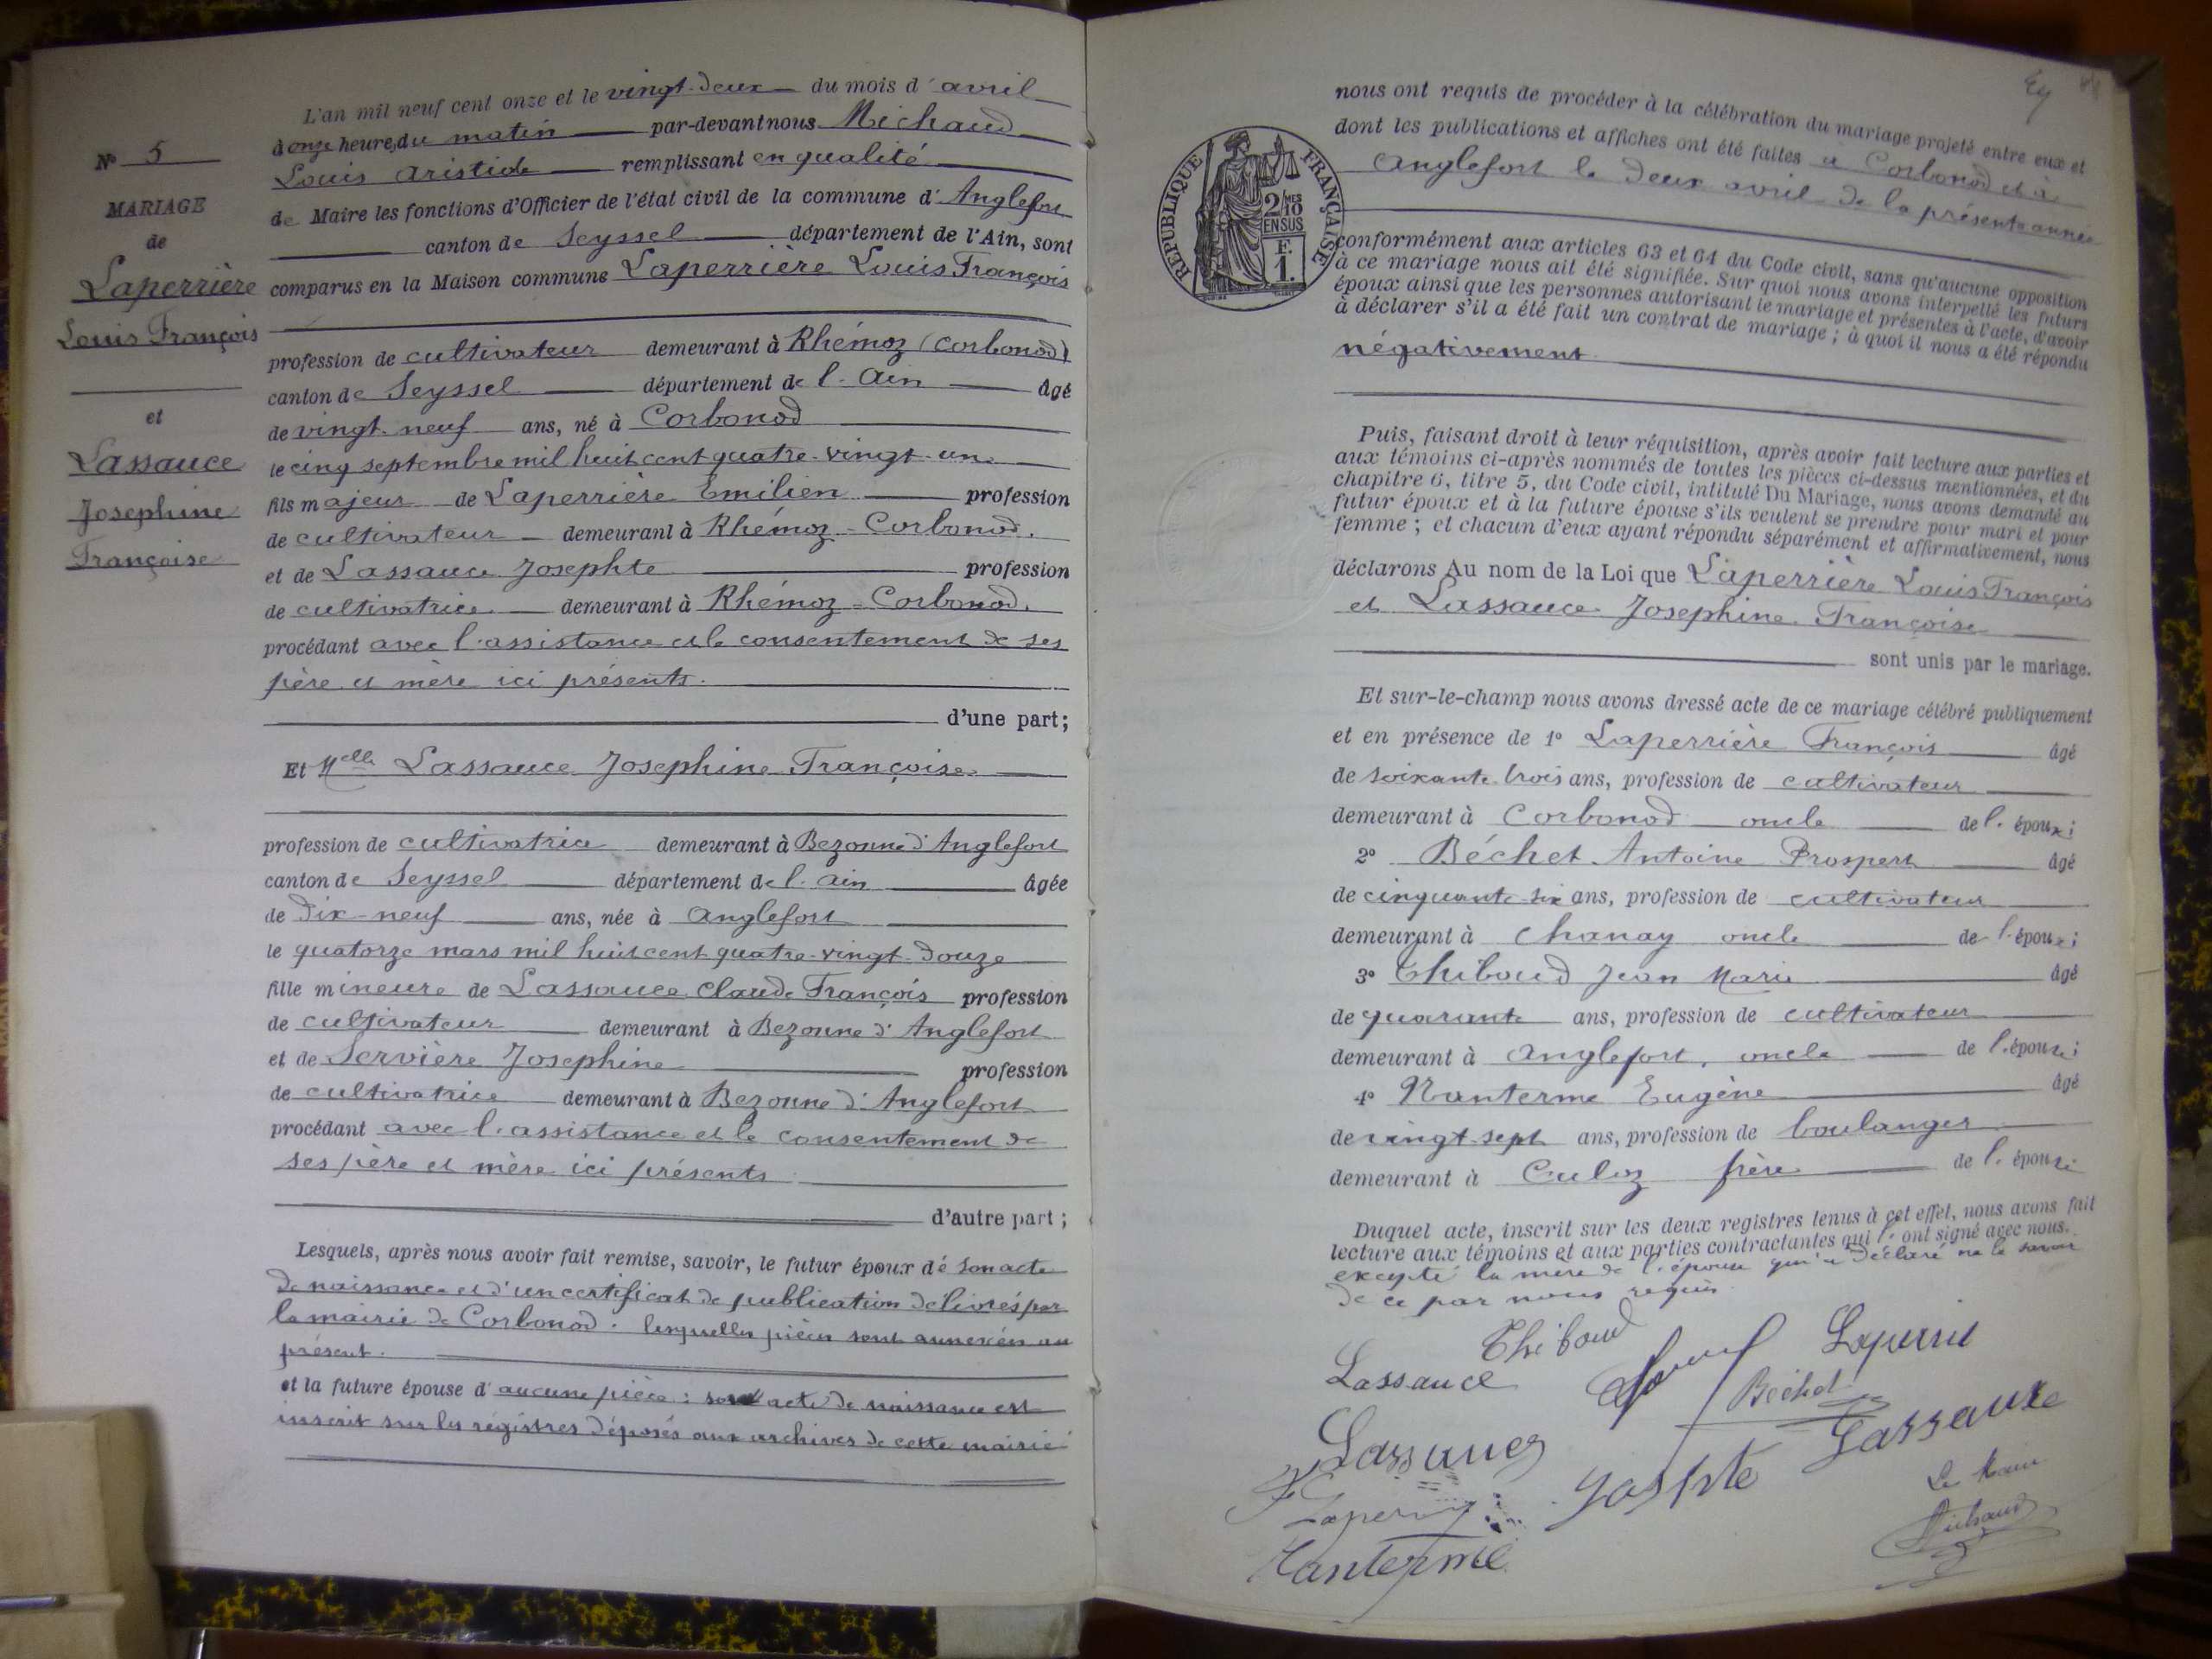 N° 5
MARIAGE
de
Laperrière
Louis François
et
Lassauce
Josephine
Françoise
L'an mil neuf cent onze et le vingt-deux du mois d'avril
à onze heures du matin par-devant nous Michaud
Louis Aristide remplissant en qualité
de Maire les fonctions d'Officier de l'état civil de la commune d'Anglefort
canton de Seyssel département de l'Ain, sont
comparus en la Maison commune Laperrière Louis François
profession de cultivateur demeurant à Rhémoz (Corbonod)
canton de Seyssel département de l'Ain âgé
de vingt-neuf ans, né à Corbonod
le cinq septembre mil huit cent quatre-vingt-un
fils majeur de Laperrière Emilien profession
de cultivateur demeurant à Rhémoz - Corbonod.
et de Lassauce Josephte profession
de cultivatrice demeurant à Rhémoz - Corbonod.
procédant avec l'assistance et le consentement de ses
père et mère ici présents.
d'une part;
Et Melle Lassauce Josephine Françoise
profession de cultivatrice demeurant à Bezonne d'Anglefort
canton de Seyssel département de l'Ain âgée
de dix-neuf ans, née à Anglefort
le quatorze mars mil huit cent quatre-vingt-douze
fille mineure de Lassauce Claude François profession
de cultivateur demeurant à Bezonne d'Anglefort
et de Servière Josephine profession
de cultivatrice demeurant à Bezonne d'Anglefort
procédant avec l'assistance et le consentement de
ses père et mère ici présents
d'autre part;
Lesquels, après nous avoir fait remise, savoir, le futur époux de son acte
de naissance et d'un certificat de publication délivrés par
la mairie de Corbonod. lesquelles pièces sont annexées au
présent.
et la future épouse d'aucune pièce: son acte de naissance est
inscrit sur les régistres déposés aux archives de cette mairie
REPUBLIQUE FRANÇAISE
2/10 MES
EN SUS
F.
1.
nous ont requis de procéder à la célébration du mariage projeté entre eux et
dont les publications et affiches ont été faites à Corbonod et à
Anglefort le deux avril de la présente année
conformément aux articles 63 et 64 du Code civil, sans qu'aucune opposition
à ce mariage nous ait été signifiée. Sur quoi nous avons interpellé les futurs
époux ainsi que les personnes autorisant le mariage et présentes à l'acte, d'avoir
à déclarer s'il a été fait un contrat de mariage; à quoi il nous a été répondu
négativement
Puis, faisant droit à leur réquisition, après avoir fait lecture aux parties et
aux témoins ci-après nommés de toutes les pièces ci-dessus mentionnées, et du
chapitre 6, titre 5, du Code civil, intitulé Du Mariage, nous avons demandé au
futur époux et à la future épouse s'ils veulent se prendre pour mari et pour
femme; et chacun d'eux ayant répondu séparément et affirmativement, nous
déclarons Au nom de la Loi que Laperrière Louis François
et Lassauce Josephine Françoise
sont unis par le mariage.
Et sur-le-champ nous avons dressé acte de ce mariage célébré publiquement
et en présence de 1° Laperrière François âgé
de soixante trois ans, profession de cultivateur
demeurant à Corbonod oncle de l'époux;
2° Béchet Antoine Prospert âgé
de cinquante-six ans, profession de cultivateur
demeurant à Chanay oncle de l'époux;
3° Thiboud Jean Marie âgé
de quarante ans, profession de cultivateur
demeurant à Anglefort, oncle de l'épouse;
4° Nanterme Eugène âgé
de vingt-sept ans, profession de boulanger
demeurant à Culoz frère de l'épouse
Duquel acte, inscrit sur les deux registres tenus à cet effet, nous avons fait
lecture aux témoins et aux parties contractantes qui l'ont signé avec nous.
excepté la mère de l'épouse qui a déclaré ne le savoir
de ce par nous requis
Thiboud
Lassauce
Béchet
Lassauce
Josphte Lassauce
Nanterme
Le Maire
Michaud